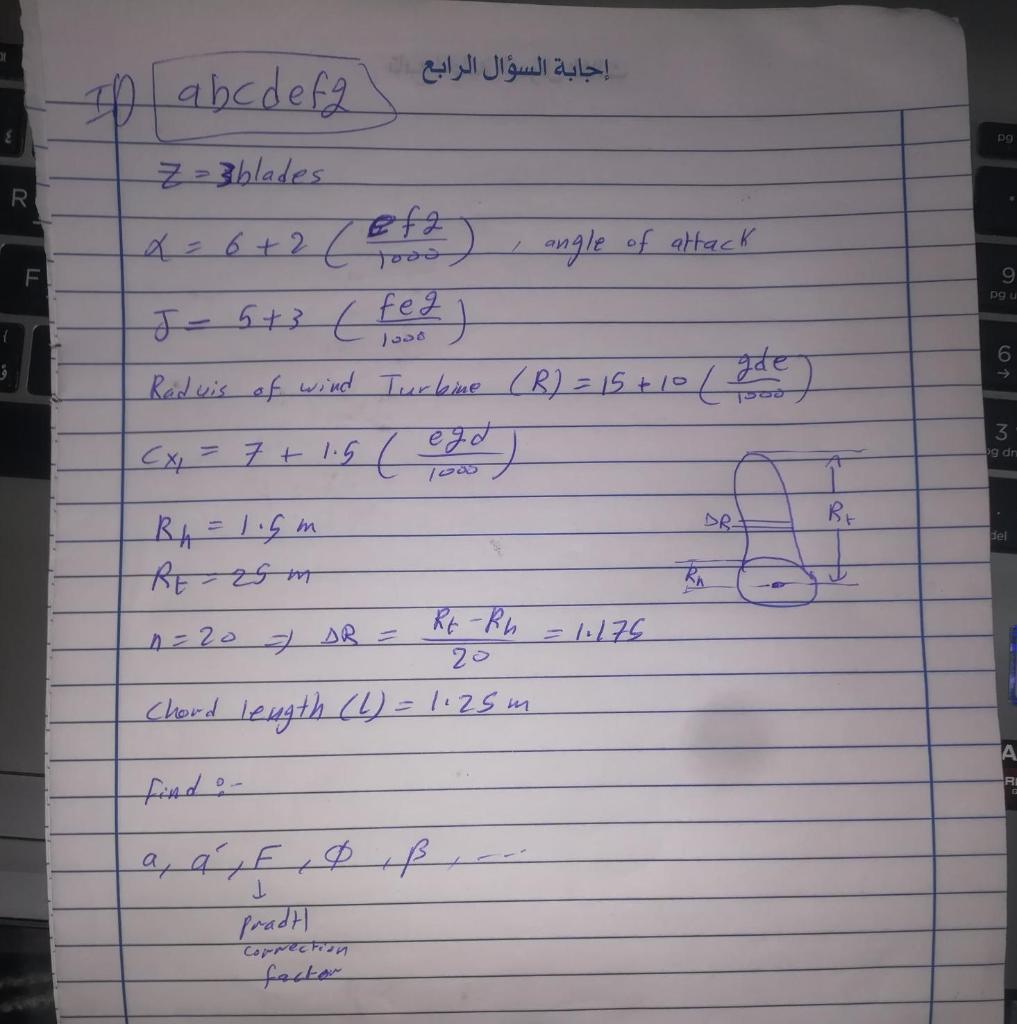 إجابة السؤال الرابع
ID abcdefg
Z = 3 blades
α = 6 + 2 ( efg / 1000 ) , angle of attack
J = 5 + 3 ( feg / 1000 )
Raduis of wind Turbine (R) = 15 + 10 ( gde / 1000 )
Cx₁ = 7 + 1.5 ( egd / 1000 )
Rh = 1.5 m
Rt = 25 m
ΔR
Rt
Rh
n = 20 ⇒ ΔR = Rt - Rh / 20 = 1.175
Chord length (L) = 1.25 m
Find :-
a, a', F, Φ, β, ---
↓
pradtl
correction
factor